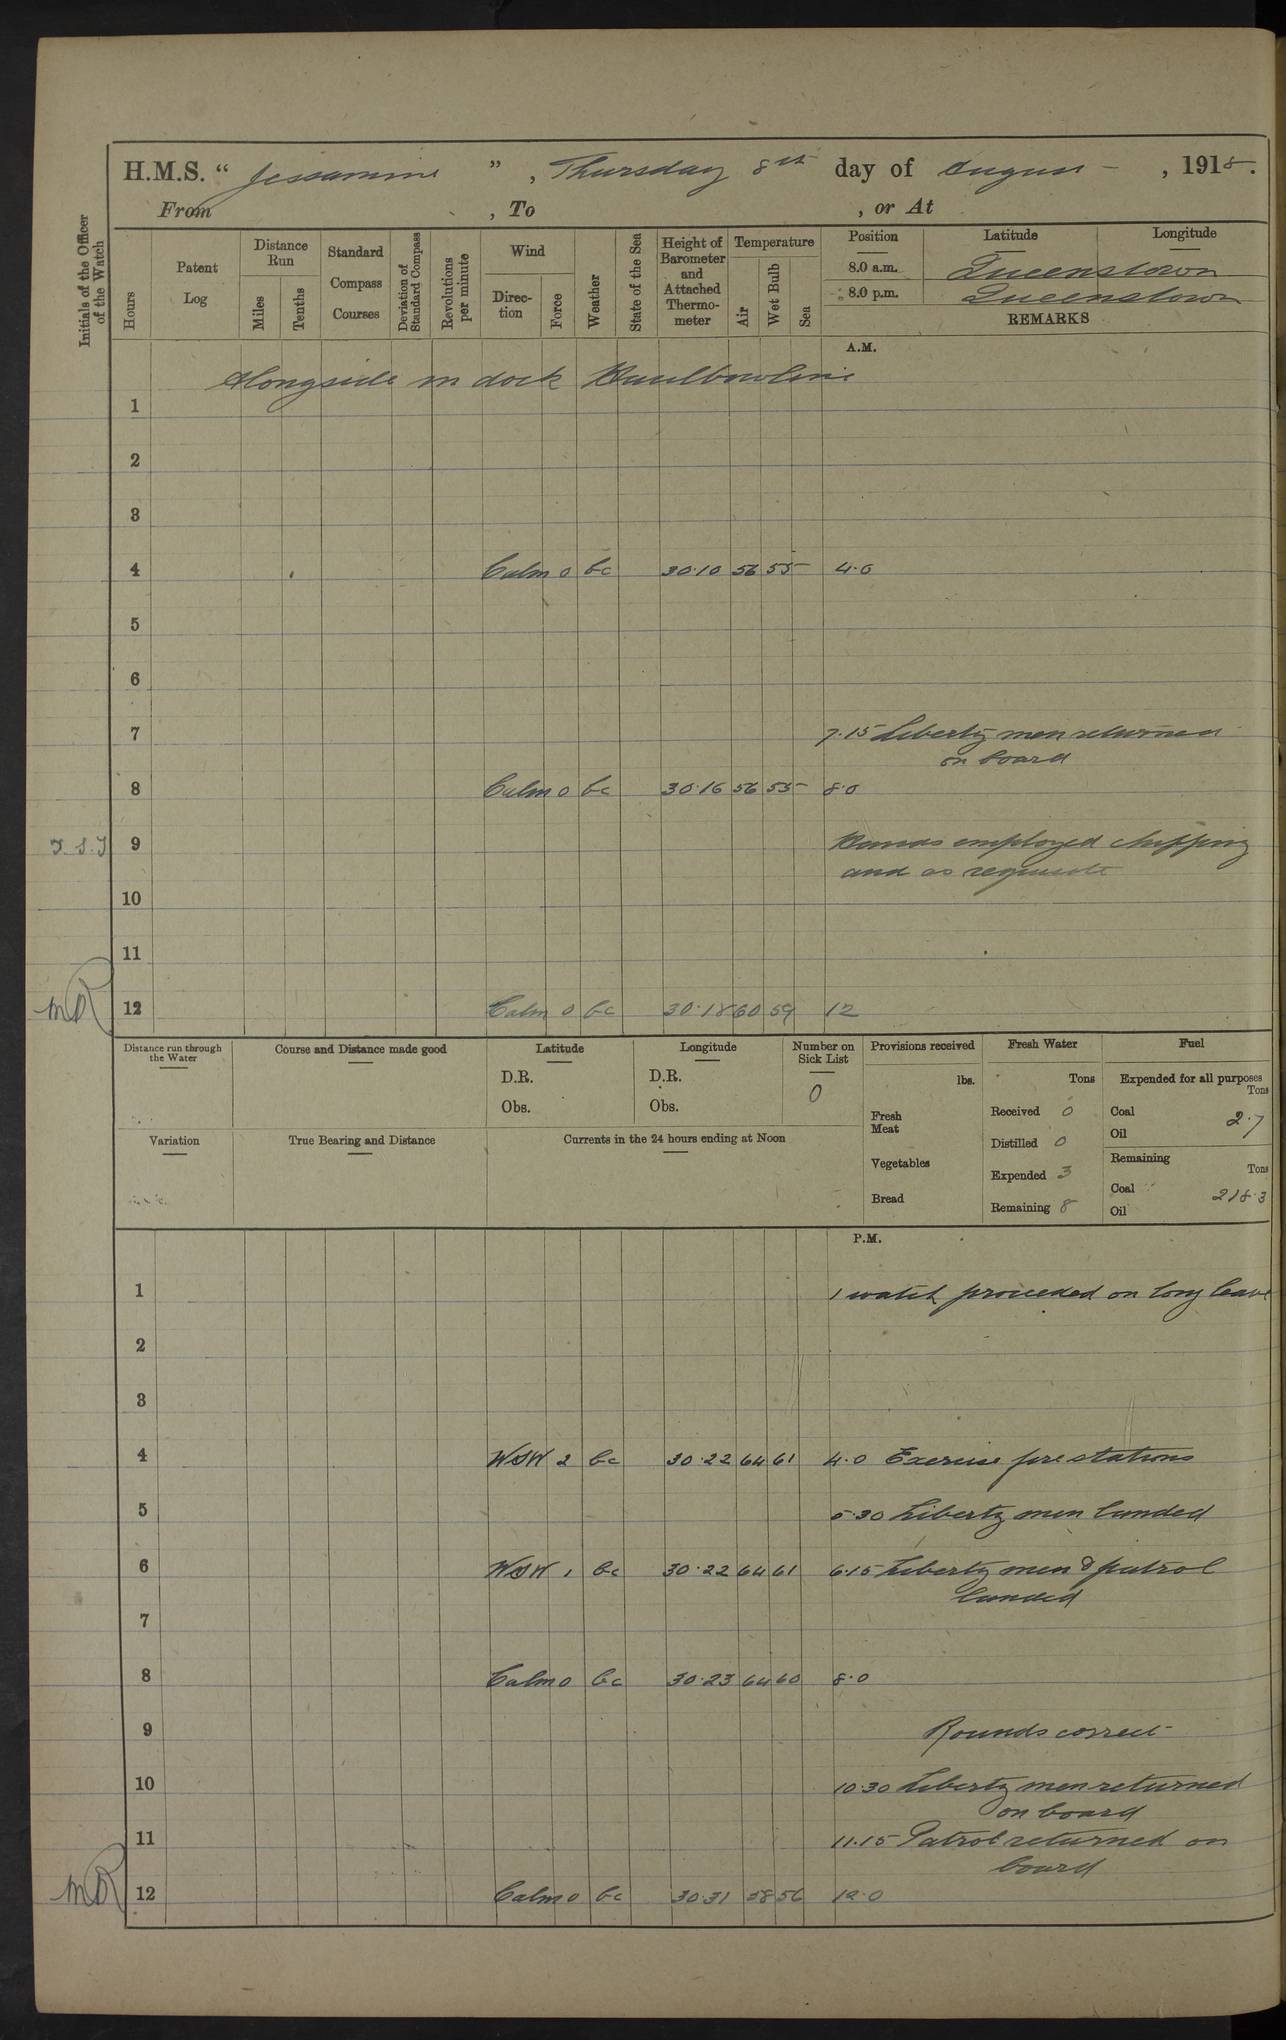 H.M.S. “ Jessamine ” , Thursday 8th day of August , 1918.
From , To , or At
Initials of the Officer of the Watch
Hours
Patent Log
Distance Run
Miles
Tenths
Standard Compass Courses
Deviation of Standard Compass
Revolutions per minute
Wind
Direc-tion
Force
Weather
State of the Sea
Height of Barometer and Attached Thermo-meter
Temperature
Air
Wet Bulb
Sea
Position Latitude Longitude
8.0 a.m. Queenstown
8.0 p.m. Queenstown
REMARKS
A.M.
Alongside in dock Haulbowline
1
2
3
4 Calm 0 bc 30.10 56 55 4.0
5
6
7 7.15 Liberty men returned
on board
8 Calm 0 bc 30.16 56 55 8.0
9 Hands employed chipping
and as requisite
10
11
12 Calm 0 bc 30.18 60 59 12
Distance run through the Water
Course and Distance made good
Latitude
D.R.
Obs.
Longitude
D.R.
Obs.
Number on Sick List
0
Provisions received
lbs.
Fresh Meat
Vegetables
Bread
Fresh Water
Tons
Received 0
Distilled 0
Expended 3
Remaining 8
Fuel
Expended for all purposes
Tons
Coal 2.7
Oil
Remaining
Tons
Coal 218.3
Oil
Variation
True Bearing and Distance
Currents in the 24 hours ending at Noon
P.M.
1 1 watch proceeded on long leave
2
3
4 WSW 2 bc 30.22 64 61 4.0 Exercise fire stations
5 5.30 Liberty men landed
6 WSW 1 bc 30.22 64 61 6.15 Liberty men & patrol
landed
7
8 Calm 0 bc 30.23 64 60 8.0
9 Rounds correct
10 10.30 Liberty men returned
on board
11 11.15 Patrol returned on
board
12 Calm 0 bc 30.31 58 56 12.0